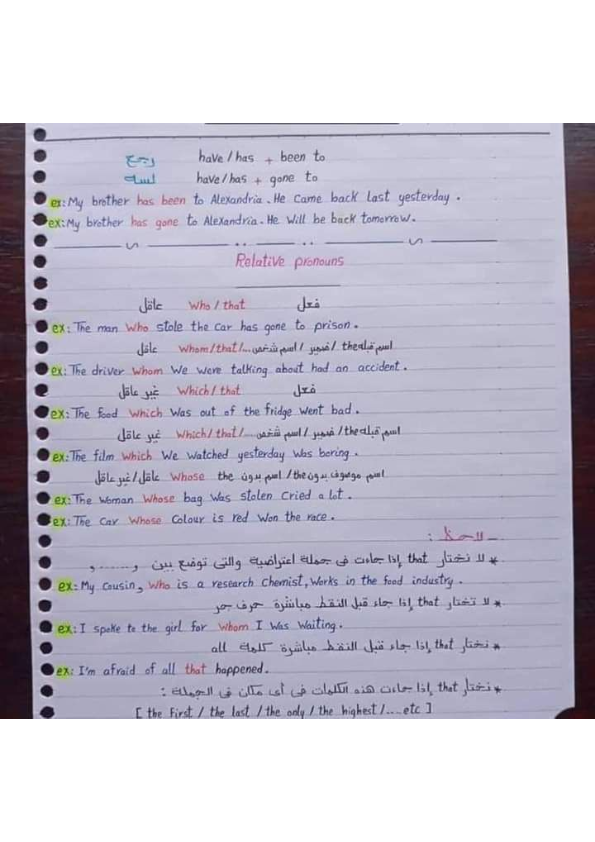 رجع have/has + been to
لسه have/has + gone to
ex: My brother has been to Alexandria. He came back last yesterday.
ex: My brother has gone to Alexandria. He will be back tomorrow.
Relative pronouns
عاقل Who/that فعل
ex: The man who stole the car has gone to prison.
عاقل Whom/that/... اسم شخص / ضمير / اسم قبله the
ex: The driver whom we were talking about had an accident.
غير عاقل Which/that فعل
ex: The food which was out of the fridge went bad.
غير عاقل Which/that/... اسم شخص / ضمير / اسم قبله the
ex: The film which we watched yesterday was boring.
عاقل/غير عاقل Whose اسم موصوف بدون the / اسم بدون the
ex: The woman whose bag was stolen cried a lot.
ex: The car whose colour is red won the race.
ملاحظة :
* لا نختار that إذا جاءت فى جملة اعتراضية والتى توضع بين و ......و
ex: My cousin, who is a research chemist, works in the food industry.
* لا تختار that إذا جاء قبل النقط مباشرة حرف جر
ex: I spoke to the girl for whom I was waiting.
* نختار that إذا جاء قبل النقط مباشرة كلمة all
ex: I'm afraid of all that happened.
* نختار that إذا جاءت هذه الكلمات فى أى مكان فى الجملة :
[ the first / the last / the only / the highest /....etc ]